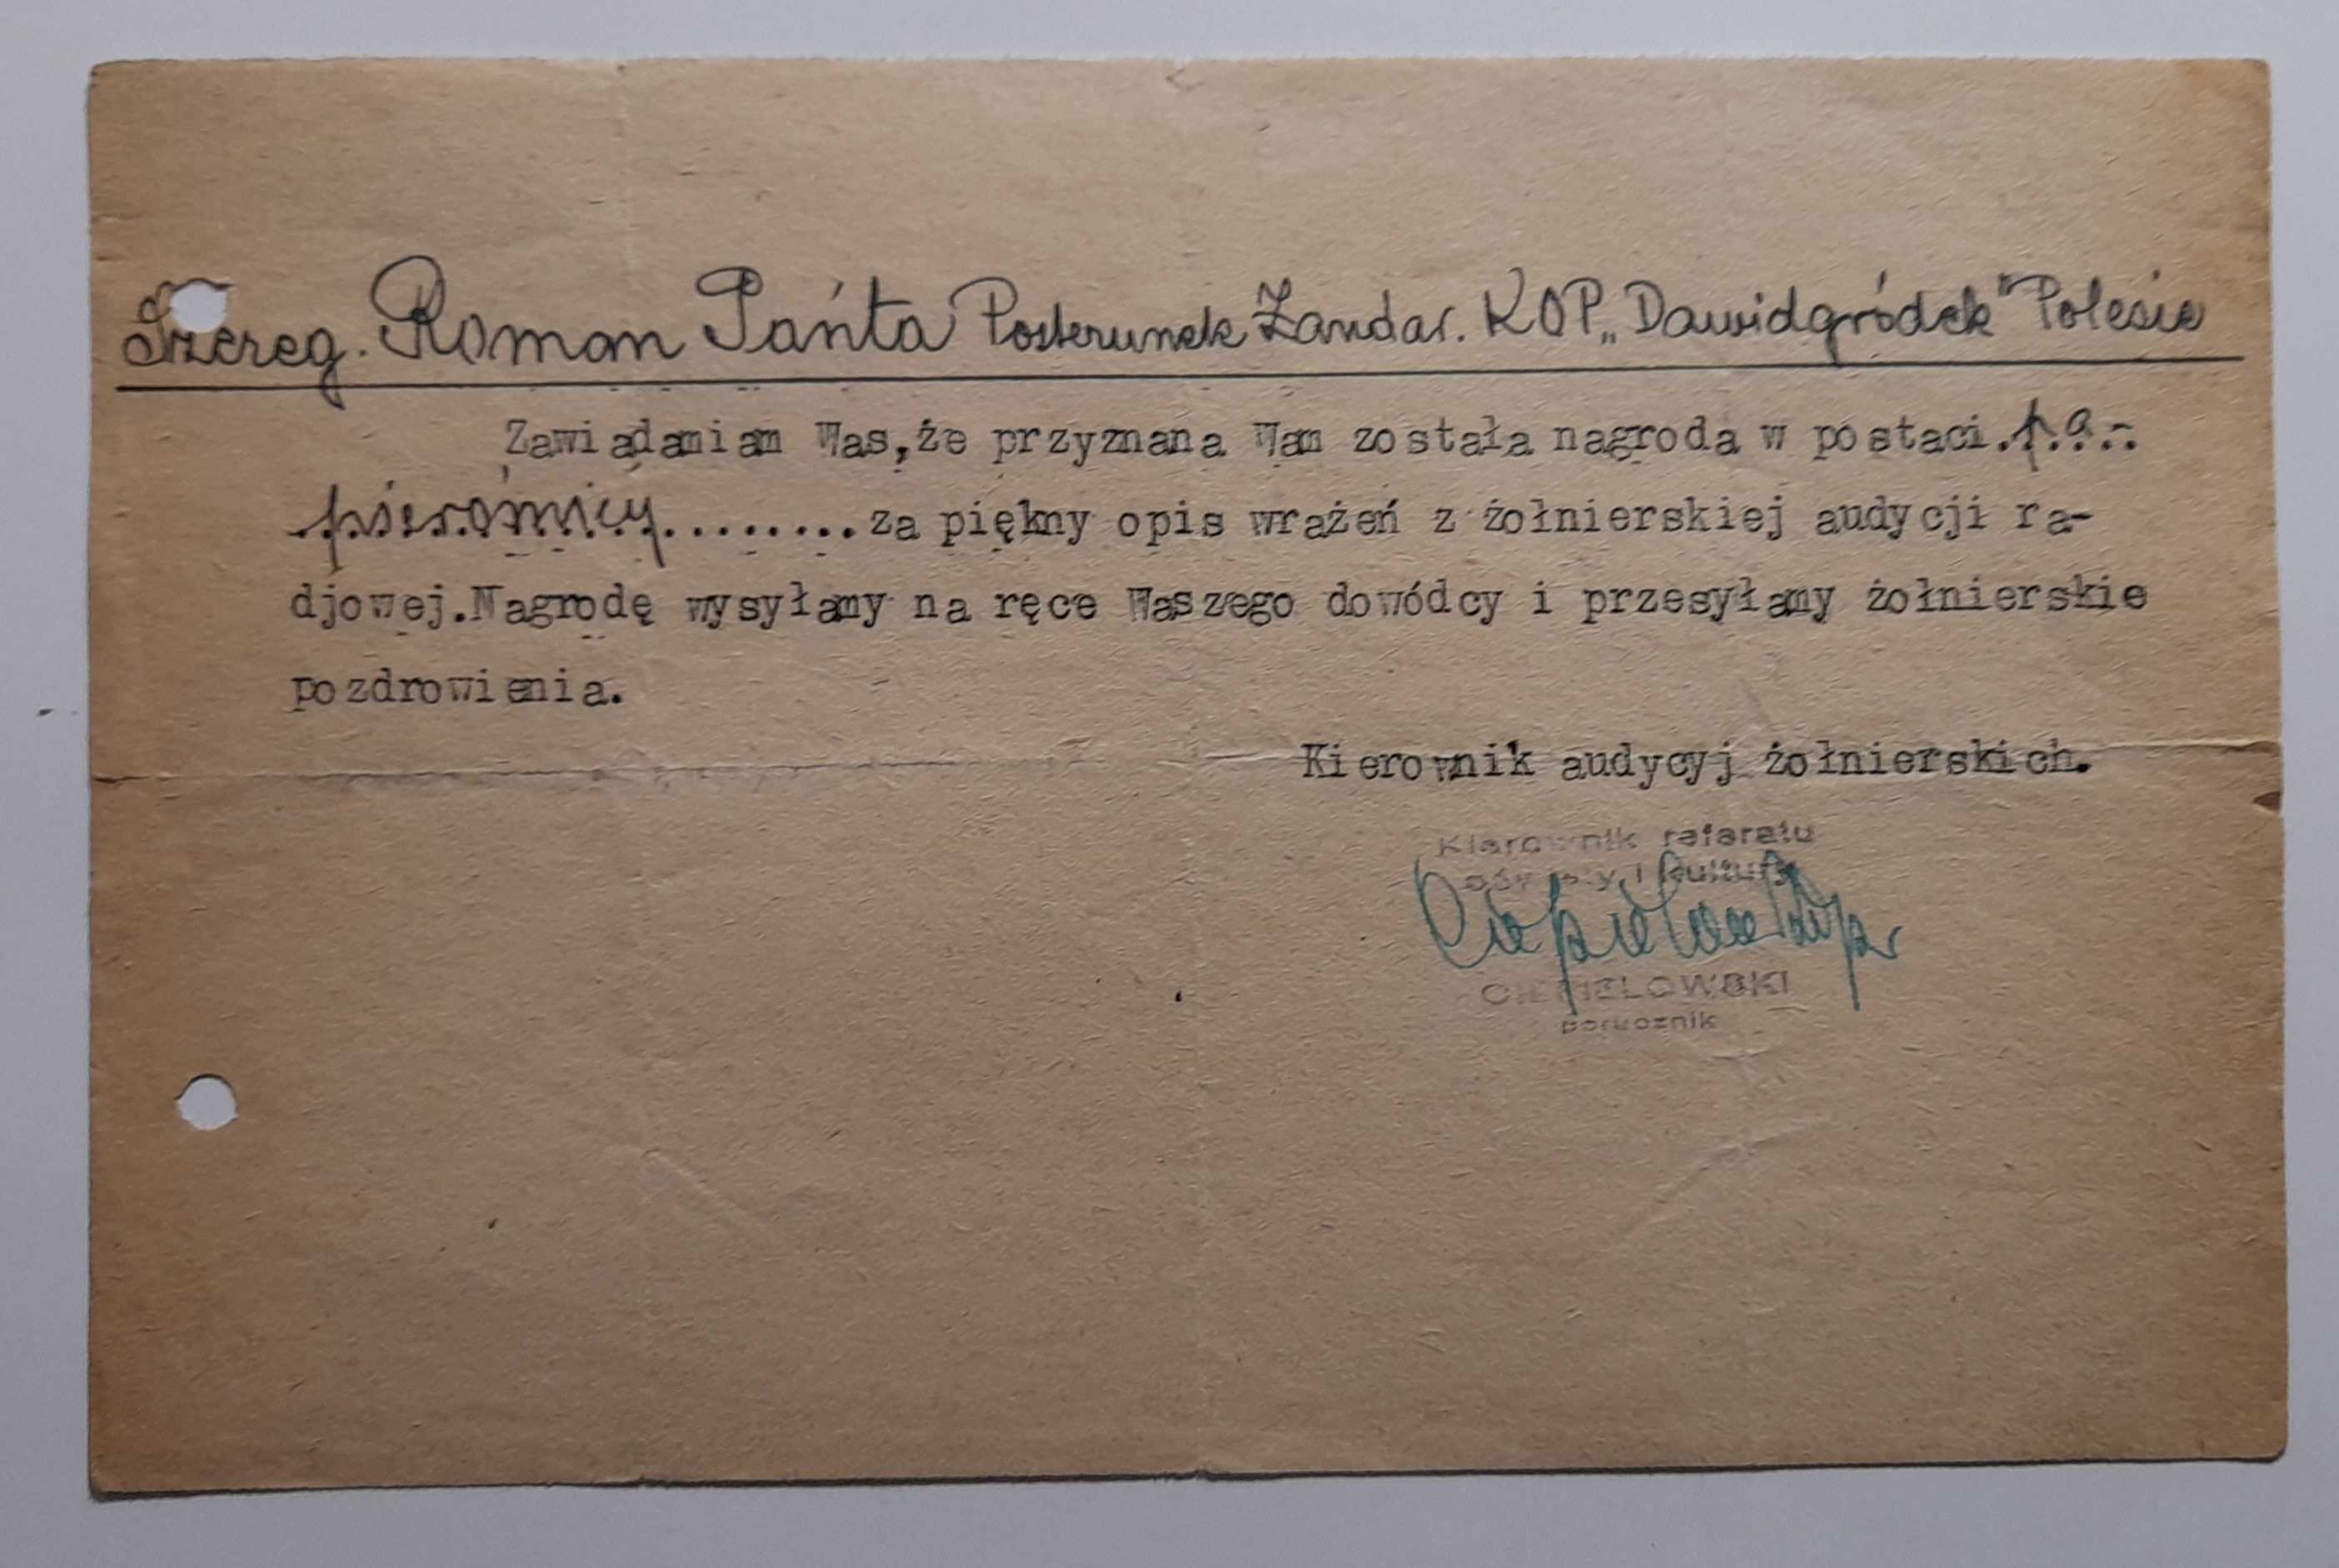 Szereg. Roman Pańta Posterunek Żandar. KOP „Dawidgródek" Polesie
Zawiadamiam Was,że przyznana Wam została nagroda w postaci.pa-..
.pierośnicy........za piękny opis wrażeń z żołnierskiej audycji ra-
djowej.Nagrodę wysyłamy na ręce Waszego dowódcy i przesyłamy żołnierskie
pozdrowienia.
Kierownik audycyj żołnierskich.
Kierownik referatu
oświaty i kultury
CIEPIELOWSKI
porucznik